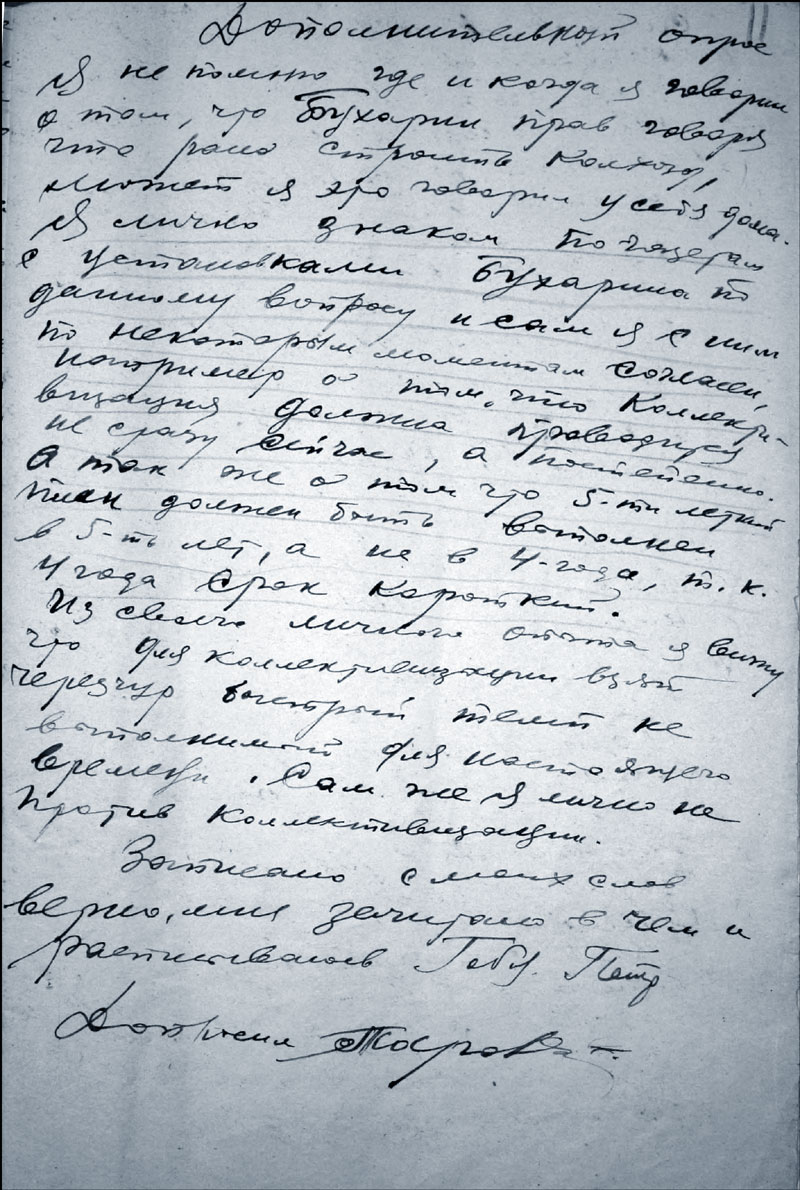 Дополнительный опрос
Я не помню где и когда я говорил
о том, что Бухарин прав говоря
что рано строить колхозы,
может я это говорил у себя дома.
Я лично знаком по газетам
с установками Бухарина по
данному вопросу и сам я с ним
по некоторым моментам согласен,
например о том, что коллекти-
визация должна проводится
не сразу сейчас, а постепенно.
А так же о том что 5-ти летний
план должен быть выполнен
в 5-ть лет, а не в 4-года, т.к.
4 года срок короткий.
Из своего личного опыта я вижу
что для коллективизации взят
черезчур быстрый темп не
выполнимый для настоящего
времени. Сам же я лично не
против коллективизации.
Записано с моих слов
верно, мне зачитано в чем и
расписываюсь Петр
Допросил